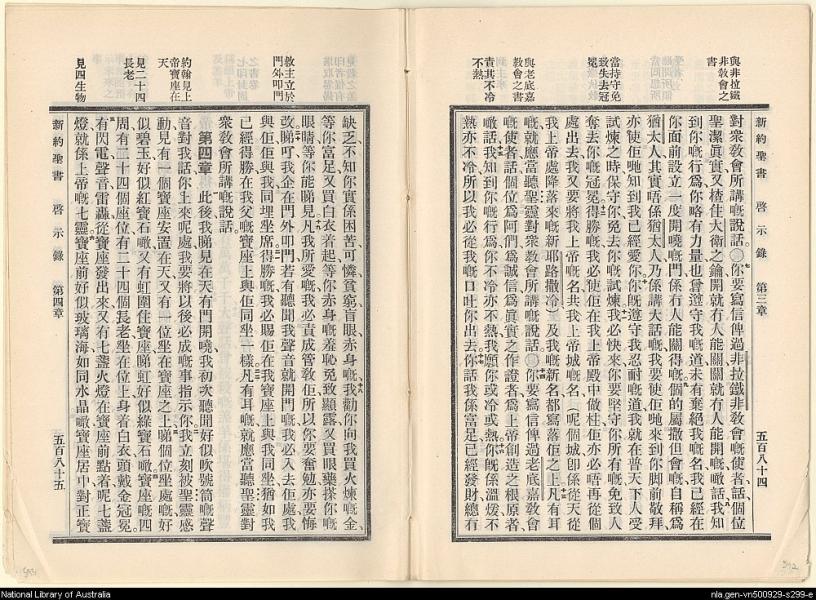 與非拉鐵
非敎會之
書
當持守免
致失去冠
冕
與老底嘉
敎會之書
責其不冷
不熱
新約聖書 啓示錄 第三章 五百八十四
對衆敎會所講嘅說話〇你要寫信俾過非拉鐵非敎會嘅使者話個位
聖潔眞實又揸住大衛之鑰開就有人能關關就有人能開嘅噉話我知
到你嘅行爲你略有力量也曾遵守我嘅道未有棄絕我嘅名我已經在
你面前設立一度開嘵嘅門係冇人能關得嘅個的屬撒但會嘅自稱爲
猶太人其實唔係猶太人乃係講大話嘅我要使佢哋來到你脚前敬拜
亦使佢哋知到我已經愛你你旣遵守我忍耐嘅道我就在普天下人受
試煉之時保守你免去你嘅試煉我必快來你要堅守你所有嘅免致人
奪去你嘅冠冕得勝嘅我必使佢在我上帝殿中做柱佢亦必唔再從個
處出去我又要將我上帝嘅名共我上帝城嘅名（呢個城卽係從天從
我上帝處降落來嘅新耶路撒冷）及我嘅新名都寫落佢之上凡有耳
嘅就應當聽聖靈對衆敎會所講嘅說話〇你要寫信俾過老底嘉敎會
嘅使者話個位爲阿們爲誠信爲眞實之作證者爲上帝創造之根原者
噉話我知到你嘅行爲你不冷亦不熱我願你或冷或熱你旣係溫煖不
熱亦不冷所以我必從我嘅口吐你出去你話我係富足已經發財總冇
敎主立於
門外叩門
約翰見上
帝寶座在
天
見二十四
長老
見四生物
缺乏不知你實係困苦可憐貧窮盲眼赤身嘅我勸你向我買火煉嘅金
等你富足又買白衣着起等你赤身嘅羞恥免致顯露又買眼藥搽你嘅
眼睛等你能睇見凡我所愛嘅我必責成管敎佢所以你要奮勉亦要悔
改睇吖我企在門外叩門若有聽聞我聲音就開門嘅我必入去佢處我
與佢佢與我同埋坐席得勝嘅我必賜佢在我寶座上與我同坐猶如我
已經得勝在我父嘅寶座上與佢同坐一樣凡有耳嘅就應當聽聖靈對
衆敎會所講嘅說話
第四章 此後我睇見在天有門開嘵我初次聽聞好似吹號筒嘅聲
音對我話你上來呢處我要將以後必成嘅事指示你我立刻被聖靈感
動見有一個寶座安置在天又有一位坐在寶座之上睇個位坐處嘅好
似碧玉好似紅寶石噉又有虹圍住寶座睇虹好似綠寶石噉寶座嘅四
周有二十四個座位有二十四個長老坐在位上身着白衣頭戴金冠冕
有閃電聲音雷轟從寶座發出來又有七盞火燈在寶座前點着呢七盞
燈就係上帝嘅七靈寶座前好似玻璃海如同水晶噉寶座居中對正寶
新約聖書 啓示錄 第四章 五百八十五
National Library of Australia
nla.gen-vn500929-s299-e